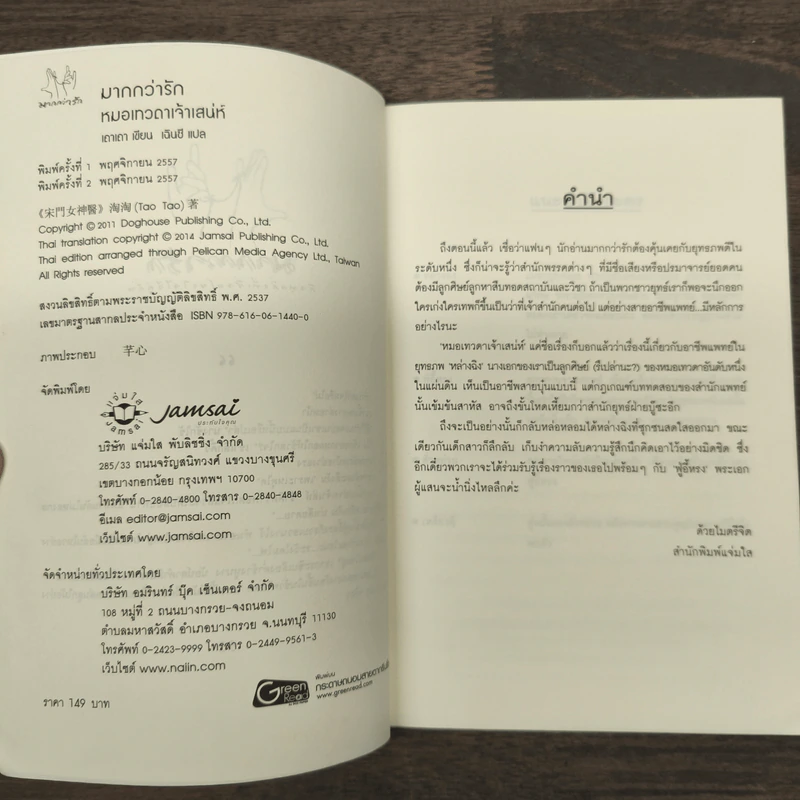 มากกว่ารัก
มากกว่ารัก
หมอเทวดาเจ้าเสน่ห์
เถาเถา เขียน เฉินซี แปล
พิมพ์ครั้งที่ 1 พฤศจิกายน 2557
พิมพ์ครั้งที่ 2 พฤศจิกายน 2557
《宋門女神醫》淘淘 (Tao Tao) 著
Copyright © 2011 Doghouse Publishing Co., Ltd.
Thai translation copyright © 2014 Jamsai Publishing Co., Ltd.
Thai edition arranged through Pelican Media Agency Ltd., Taiwan
All Rights reserved
สงวนลิขสิทธิ์ตามพระราชบัญญัติลิขสิทธิ์ พ.ศ. 2537
เลขมาตรฐานสากลประจำหนังสือ ISBN 978-616-06-1440-0
ภาพประกอบ 芊心
จัดพิมพ์โดย
แจ่มใส
Jamsai
Jamsai
ประทับใจคุณ
บริษัท แจ่มใส พับลิชชิ่ง จำกัด
285/33 ถนนจรัญสนิทวงศ์ แขวงบางขุนศรี
เขตบางกอกน้อย กรุงเทพฯ 10700
โทรศัพท์ 0-2840-4800 โทรสาร 0-2840-4848
อีเมล editor@jamsai.com
เว็บไซต์ www.jamsai.com
จัดจำหน่ายทั่วประเทศโดย
บริษัท อมรินทร์ บุ๊ค เซ็นเตอร์ จำกัด
108 หมู่ที่ 2 ถนนบางกรวย-จงถนอม
ตำบลมหาสวัสดิ์ อำเภอบางกรวย จ.นนทบุรี 11130
โทรศัพท์ 0-2423-9999 โทรสาร 0-2449-9561-3
เว็บไซต์ www.naiin.com
ราคา 149 บาท
Green
Read
พิมพ์บน
กระดาษถนอมสายตากรีนรีด
www.greenread.com
คำนำ
ถึงตอนนี้แล้ว เชื่อว่าแฟนๆ นักอ่านมากกว่ารักต้องคุ้นเคยกับยุทธภพดีใน
ระดับหนึ่ง ซึ่งก็น่าจะรู้ว่าสำนักพรรคต่างๆ ที่มีชื่อเสียงหรือปรมาจารย์ยอดคน
ต้องมีลูกศิษย์ลูกหาสืบทอดสถาบันและวิชา ถ้าเป็นพวกชาวยุทธ์เราก็พอจะนึกออก
ใครเก่งใครเทพก็ขึ้นเป็นว่าที่เจ้าสำนักคนต่อไป แต่อย่างสายอาชีพแพทย์...มีหลักการ
อย่างไรนะ
'หมอเทวดาเจ้าเสน่ห์' แค่ชื่อเรื่องก็บอกแล้วว่าเรื่องนี้เกี่ยวกับอาชีพแพทย์ใน
ยุทธภพ 'หล่างฉิง' นางเอกของเราเป็นลูกศิษย์ (รึเปล่านะ?) ของหมอเทวดาอันดับหนึ่ง
ในแผ่นดิน เห็นเป็นอาชีพสายบุ๋นแบบนี้ แต่กฎเกณฑ์บททดสอบของสำนักแพทย์
นั้นเข้มข้นสาหัส อาจถึงขั้นโหดเหี้ยมกว่าสำนักยุทธ์ฝ่ายบู๊ซะอีก
ถึงจะเป็นอย่างนั้นก็กลับหล่อหลอมได้หล่างฉิงที่ซุกซนสดใสออกมา ขณะ
เดียวกันเด็กสาวก็ลึกลับ เก็บงำความลับความรู้สึกนึกคิดเอาไว้อย่างมิดชิด ซึ่ง
อีกเดี๋ยวพวกเราจะได้ร่วมรับรู้เรื่องราวของเธอไปพร้อมๆ กับ 'ฟู่อี้หรง' พระเอก
ผู้แสนจะน้ำนิ่งไหลลึกค่ะ
ด้วยไมตรีจิต
สำนักพิมพ์แจ่มใส